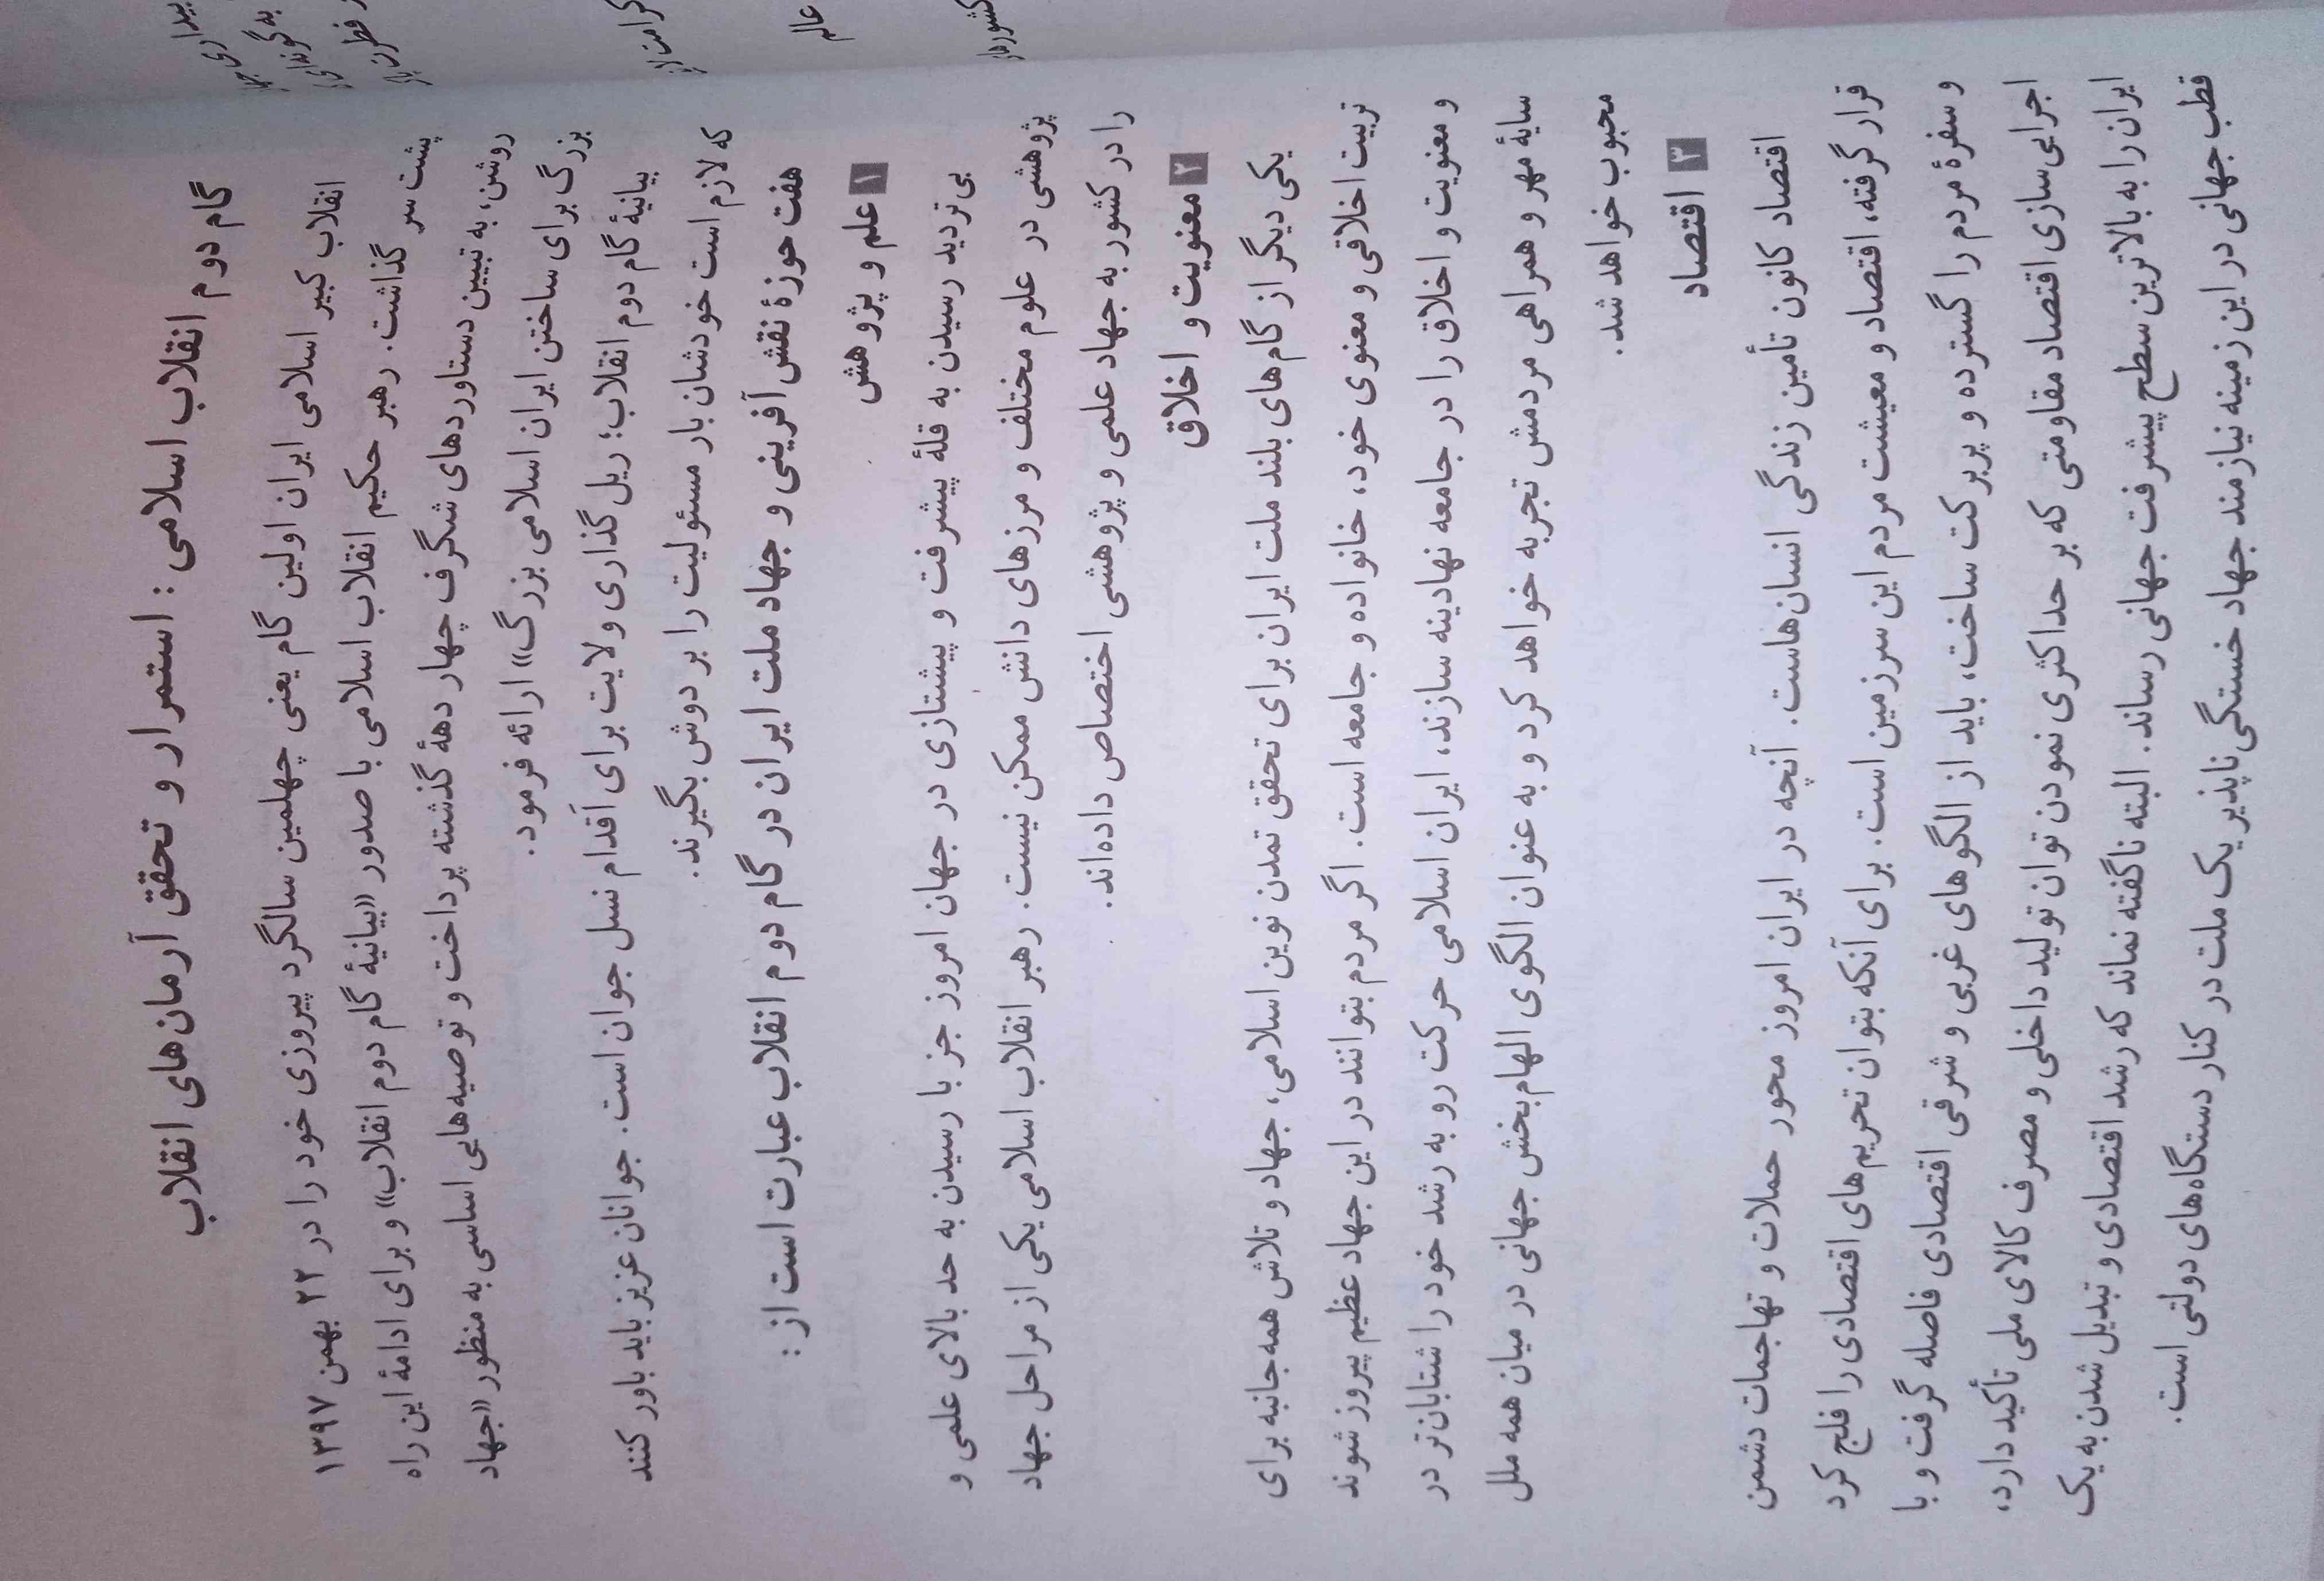 گام دوم انقلاب اسلامی : استمرار و تحقق آرمان‌های انقلاب
انقلاب کبیر اسلامی ایران اولین گام یعنی چهلمین سالگرد پیروزی خود را در ۲۲ بهمن ۱۳۹۷
پشت سر گذاشت. رهبر حکیم انقلاب اسلامی با صدور «بیانیهٔ گام دوم انقلاب» و برای ادامهٔ این راه
روشن، به تبیین دستاوردهای شگرف چهار دههٔ گذشته پرداخت و توصیه‌هایی اساسی به منظور «جهاد
بزرگ برای ساختن ایران اسلامی بزرگ» ارائه فرمود.
بیانیهٔ گام دوم انقلاب؛ ریل گذاری ولایت برای اَقدام نسل جوان است. جوانان عزیز باید باور کنند
که لازم است خودشان بار مسئولیت را بر دوش بگیرند.
هفت حوزهٔ نقش آفرینی و جهاد ملت ایران در گام دوم انقلاب عبارت است از :
۱ علم و پژوهش
بی تردید رسیدن به قلهٔ پیشرفت و پیشتازی در جهان امروز جز با رسیدن به حد بالای علمی و
پژوهشی در علوم مختلف و مرزهای دانش ممکن نیست. رهبر انقلاب اسلامی یکی از مراحل جهاد
را در کشور به جهاد علمی و پژوهشی اختصاص داده‌اند.
۲ معنویت و اخلاق
یکی دیگر از گام‌های بلند ملت ایران برای تحقق تمدن نوین اسلامی، جهاد و تلاش همه جانبه برای
تربیت اخلاقی و معنوی خود، خانواده و جامعه است. اگر مردم بتوانند در این جهاد عظیم پیروز شوند
و معنویت و اخلاق را در جامعه نهادینه سازند، ایران اسلامی حرکت رو به رشد خود را شتابان‌تر در
سایهٔ مهر و همراهی مردمش تجربه خواهد کرد و به عنوان الگوی الهام‌بخش جهانی در میان همه ملل
محبوب خواهد شد.
۳ اقتصاد
اقتصاد کانون تأمین زندگی انسان‌هاست. آنچه در ایران امروز محور حملات و تهاجمات دشمن
قرار گرفته، اقتصاد و معیشت مردم این سرزمین است. برای آنکه بتوان تحریم‌های اقتصادی را فلج کرد
و سفرهٔ مردم را گسترده و پربرکت ساخت، باید از الگوهای غربی و شرقی اقتصادی فاصله گرفت و با
اجرایی‌سازی اقتصاد مقاومتی که بر حداکثری نمودن توان تولید داخلی و مصرف کالای ملی تأکید دارد،
ایران را به بالاترین سطح پیشرفت جهانی رساند. البته ناگفته نماند که رشد اقتصادی و تبدیل شدن به یک
قطب جهانی در این زمینه نیازمند جهاد خستگی ناپذیر یک ملت در کنار دستگاه‌های دولتی است.